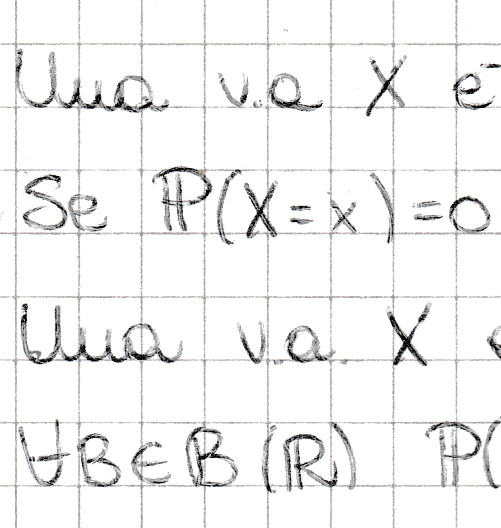 Una v.a X è
Se ℙ(X=x)=0
Una v.a. X
∀B∈B(ℝ) ℙ(